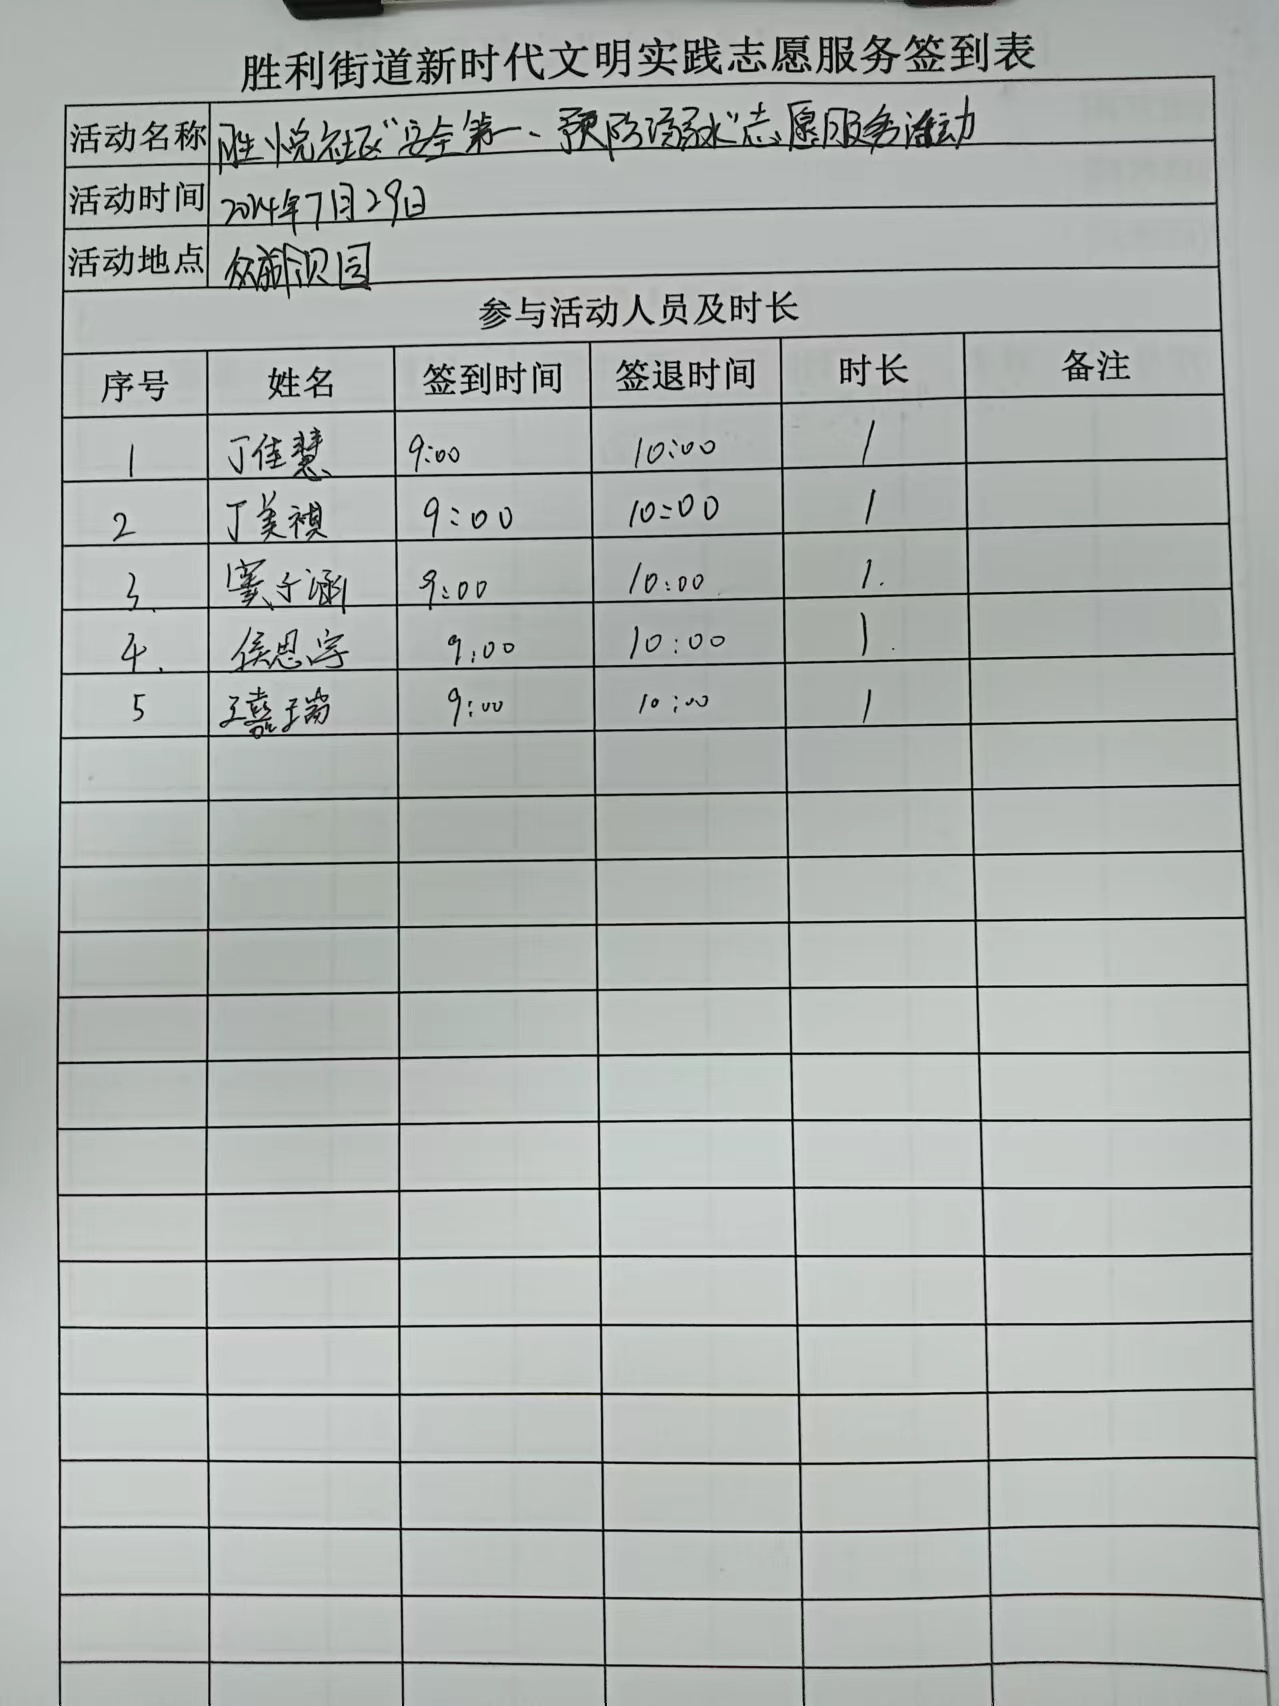 胜利街道新时代文明实践志愿服务签到表
活动名称 胜悦社区“安全第一、预防溺水”志愿服务活动
活动时间 2024年7月29日
活动地点
参与活动人员及时长
序号 姓名 签到时间 签退时间 时长 备注
1 丁佳慧 9:00 10:00 1
2 丁美祺 9:00 10:00 1
3. 窦子涵 9:00 10:00 1.
4. 侯思宇 9:00 10:00 1.
5 王嘉瑞 9:00 10:00 1